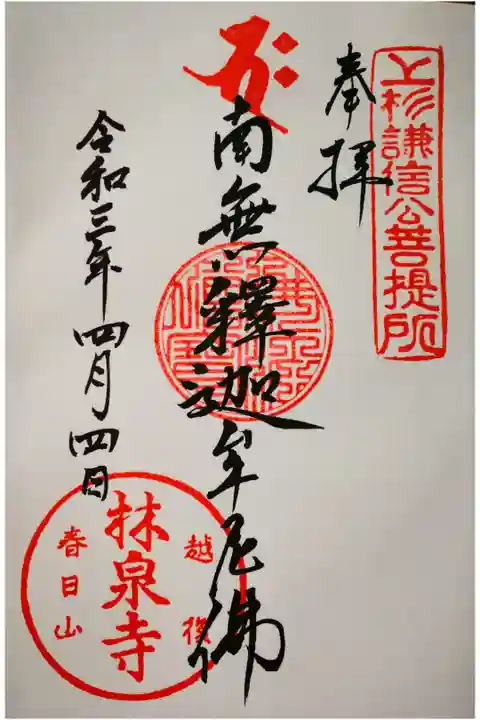 上杉謙信公菩提所
奉拝
南無釋迦牟尼佛
令和三年四月四日
越後
林泉寺
春日山